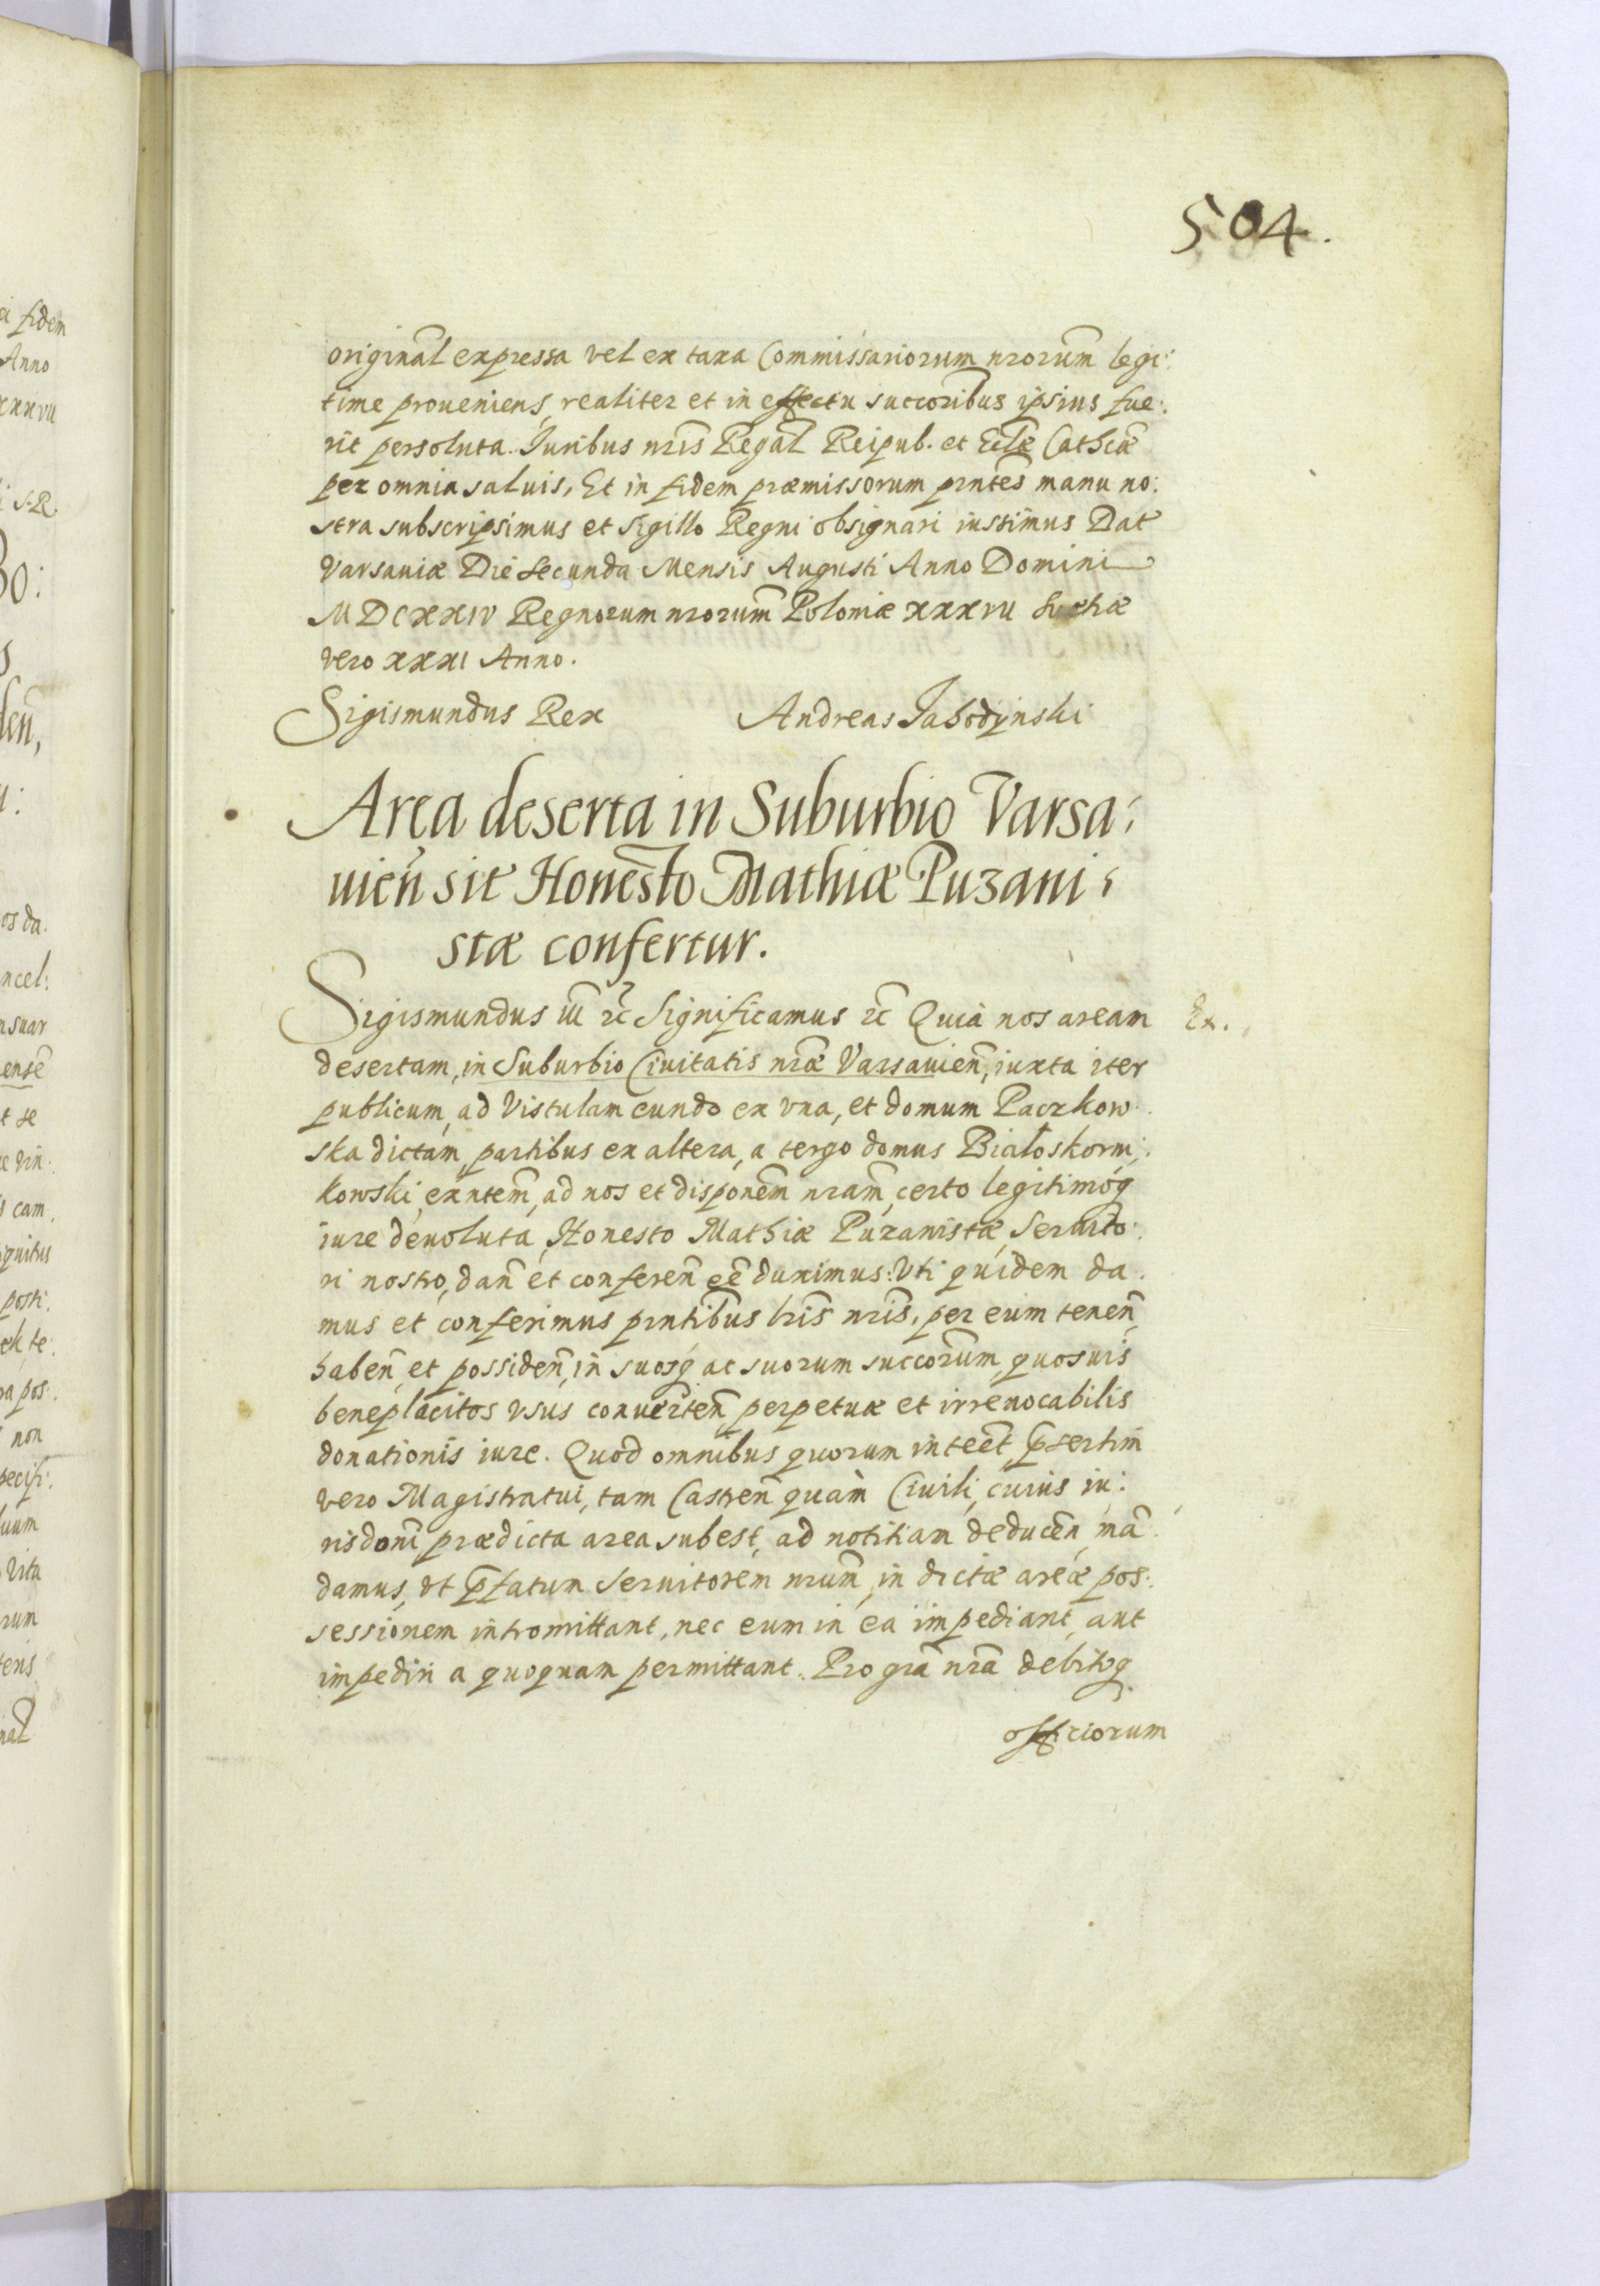 504.
originał expressa vel ex taxa Commissariorum nrorum legi:
time proueniens, realiter et in effectu succoribus ipsius fue:
rit persoluta. Juribus nris Regal Reipub. et Eccłæ Cathcæ
per omnia saluis, Et in fidem præmissorum pntes manu no:
stra subscripsimus et sigillo Regni obsignari iussimus Dat
Varsauiæ Die secunda Mensis Augusti Anno Domini
MDCXXIV Regnorum nrorum Poloniæ XXXVII Suetiæ
vero XXXI Anno.
Sigismundus Rex Andreas Jabodynski
Area deserta in Suburbio Varsa:
uien sit Honesto Mathiæ Puzani:
stæ confertur.
Sigismundus III etc Significamus etc Quia nos aream Ex.
desertam, in Suburbio Ciuitatis nræ Varsauien, iuxta iter
publicum, ad Vistulam eundo ex vna, et domum Paczkow:
ska dictam, partibus ex altera, a tergo domus Białoskorni:
kowski, exntem, ad nos et disponem nram, certo legitimoq
iure deuoluta, Honesto Mathiæ Puzanistæ, Seruito:
ri nostro, dan et conferen eē duximus: Vti quidem da:
mus et conferimus pntibus lris nris, per eum tenen,
haben, et possiden, in suosq ac suorum succorum, quosuis
beneplacitos vsus conuerten, perpetuæ et irreuocabilis
donationis iure. Quod omnibus quorum inteēt, pſertim
vero Magistratui, tam Castren quàm Ciuili, cuius iu:
risdoni prædicta area subest, ad notitiam deducen, mā
damus, vt pfatum Seruitorem nrum, in dictæ areæ pos:
sessionem intromittant, nec eum in ea impediant, aut
impediri a quoquam permittant. Pro gra nra debitoq
officiorum